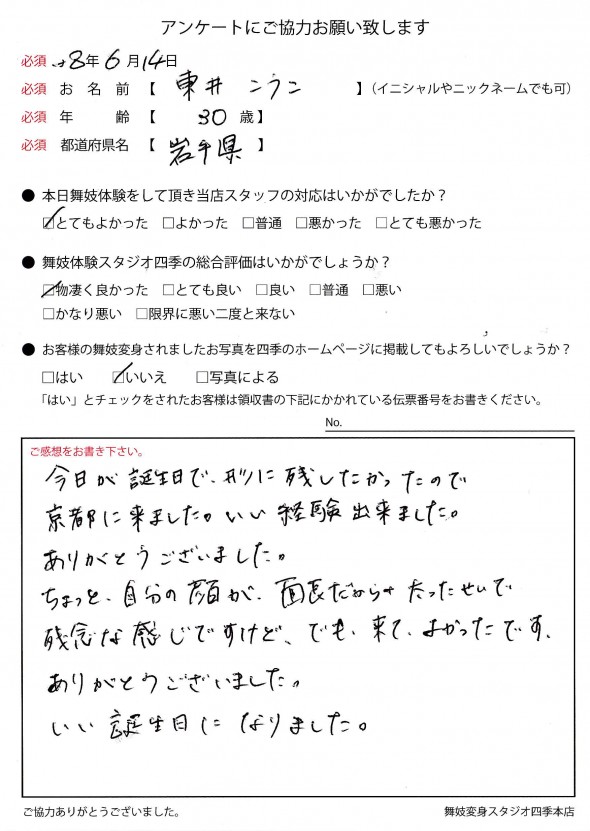 アンケートにご協力お願い致します
必須 8年6月14日
必須 お名前 【 東井 】(イニシャルやニックネームでも可)
必須 年齢 【 30 歳】
必須 都道府県名 【 岩手県 】
● 本日舞妓体験をして頂き当店スタッフの対応はいかがでしたか?
☑とてもよかった □よかった □普通 □悪かった □とても悪かった
● 舞妓体験スタジオ四季の総合評価はいかがでしょうか?
☑物凄く良かった □とても良い □良い □普通 □悪い
□かなり悪い □限界に悪い二度と来ない
● お客様の舞妓変身されましたお写真を四季のホームページに掲載してもよろしいでしょうか?
□はい ☑いいえ □写真による
「はい」とチェックをされたお客様は領収書の下記にかかれている伝票番号をお書きください。
No.
ご感想をお書き下さい。
今日が誕生日で、形に残したかったので
京都に来ました。いい経験出来ました。
ありがとうございました。
ちょっと、自分の顔が、面長だから せいで
残念な感じですけど、でも、来て、よかったです、
ありがとうございました。
いい誕生日になりました。
ご協力ありがとうございました。
舞妓変身スタジオ四季本店